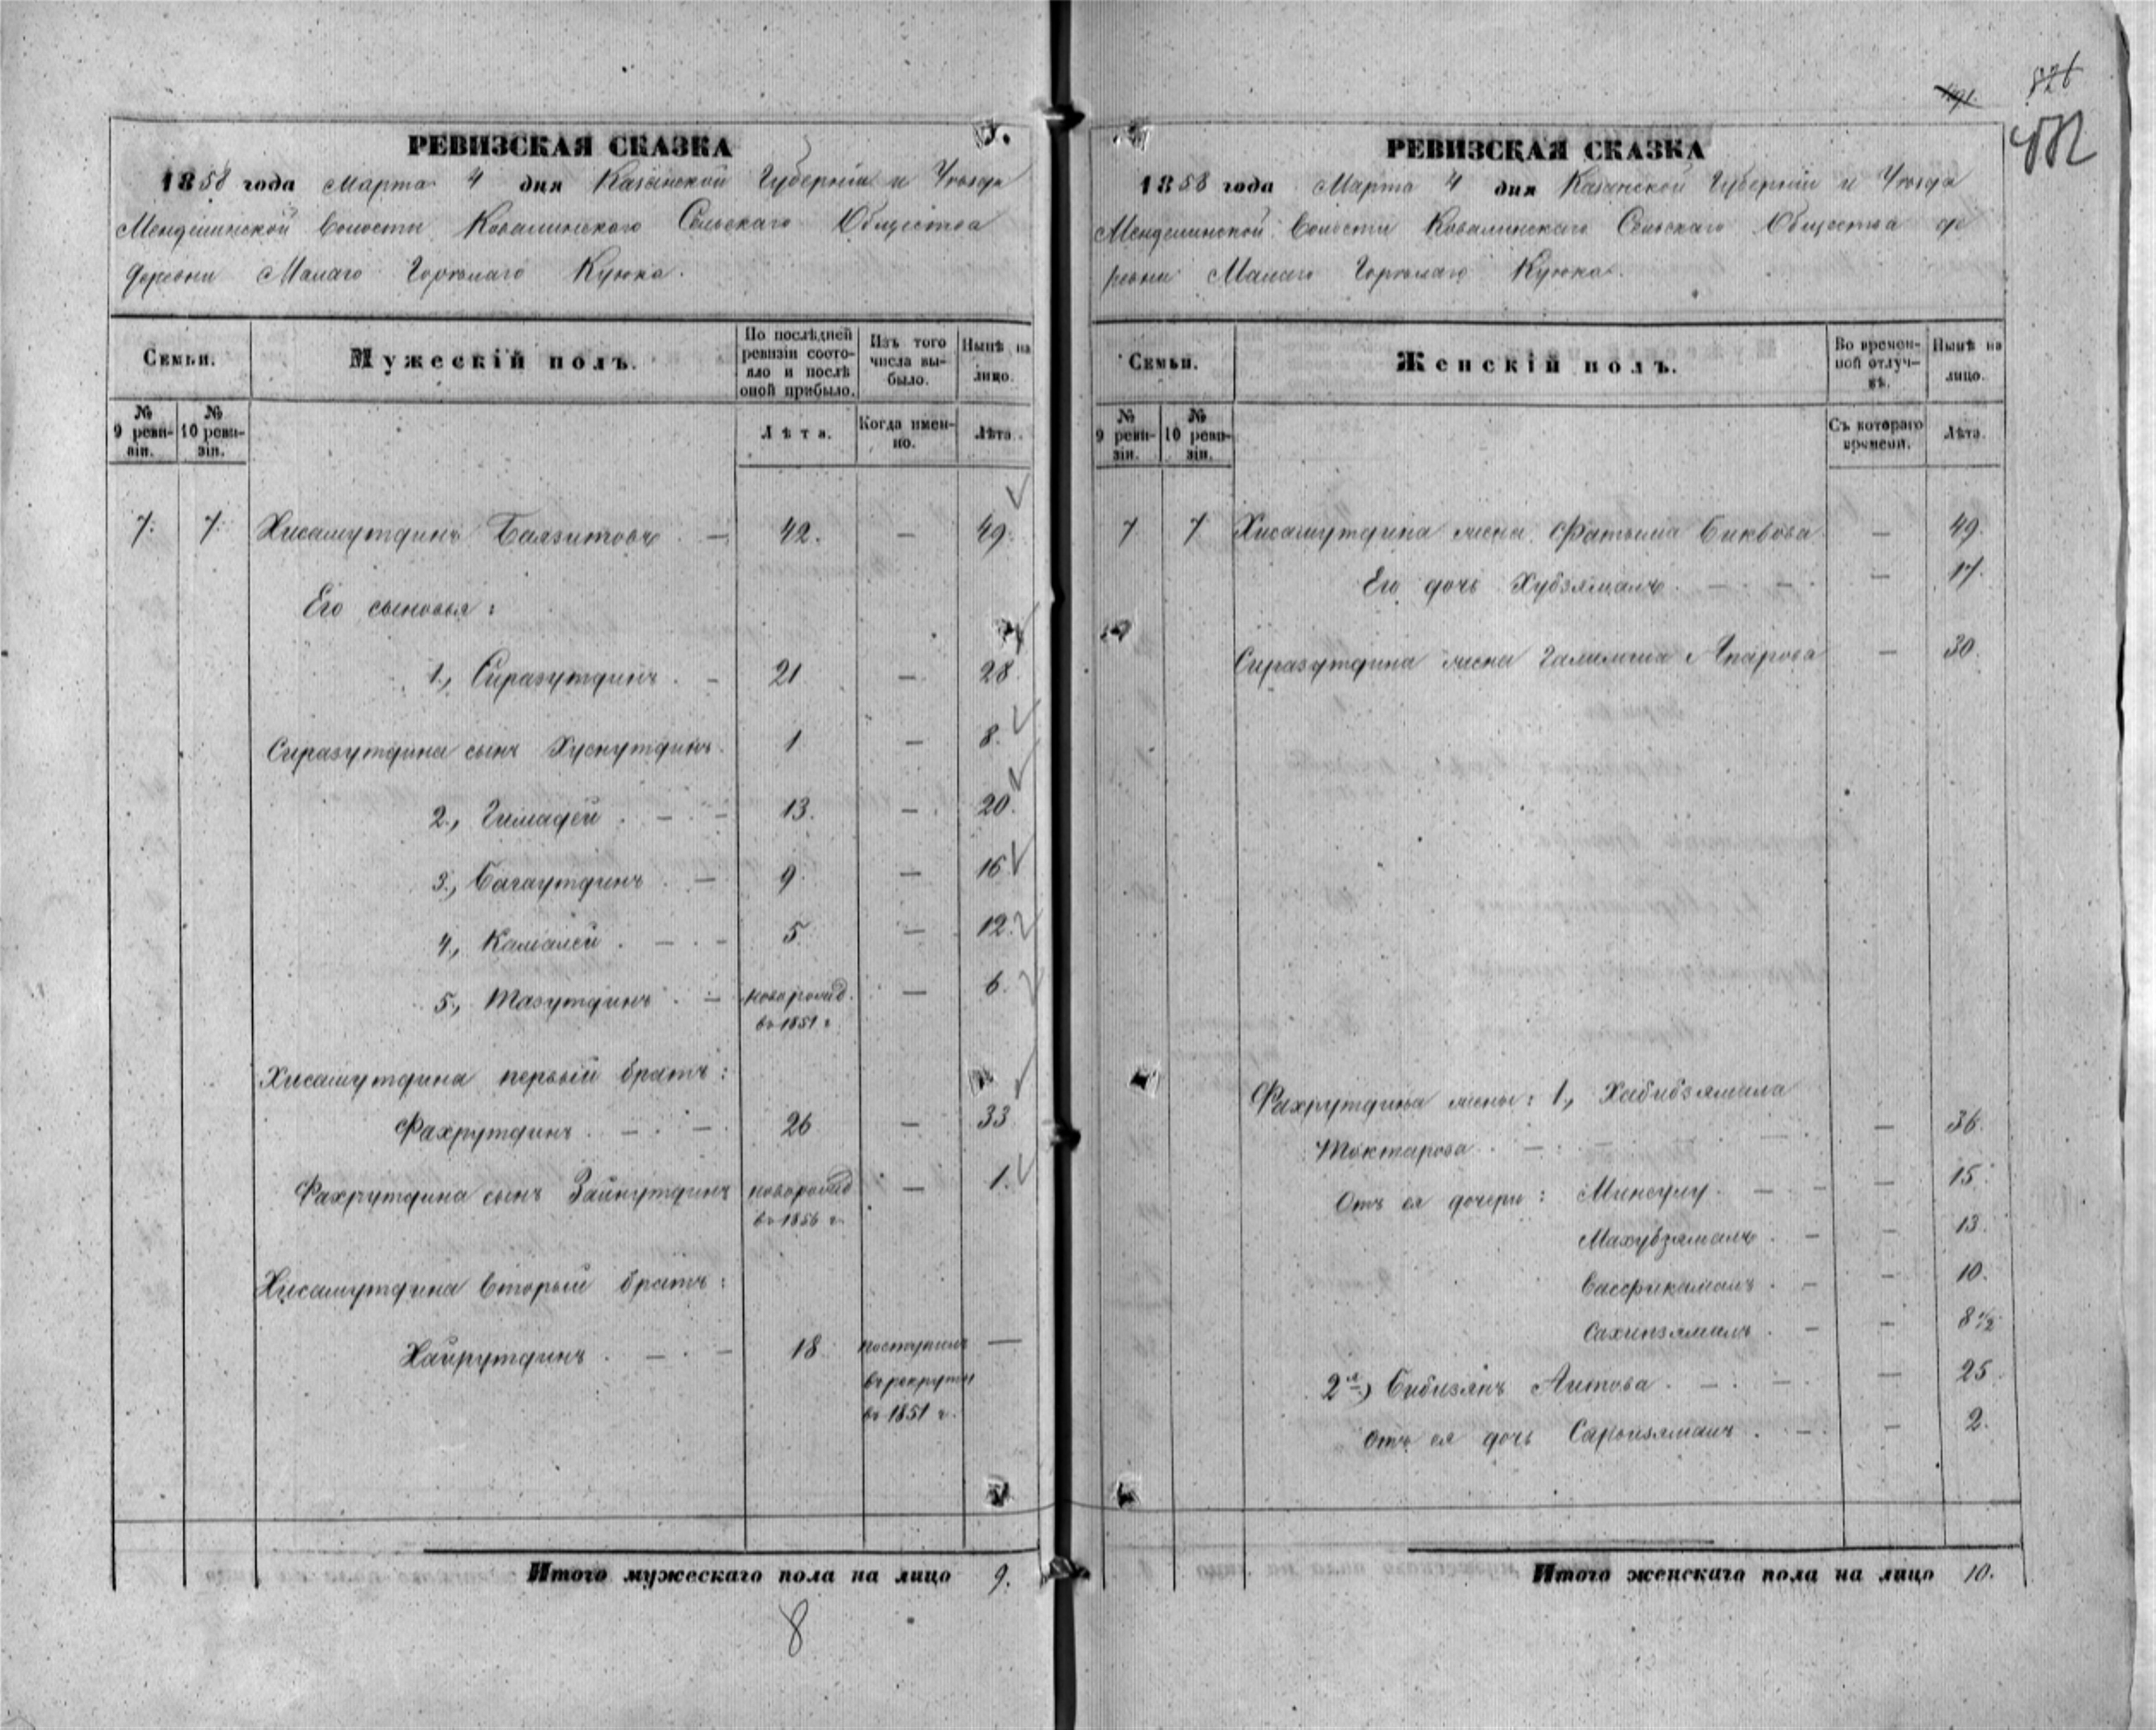 826
491.
РЕВИЗСКАЯ СКАЗКА
1858 года Марта 4 дня Казанской Губерніи и Уѣзда
Менделинской Волости Ковалинскаго Сельскаго Общества
деревни Малаго Горѣлаго Куюка.
Семьи.
Мужескій полъ.
По послѣдней ревизіи состояло и послѣ оной прибыло.
Изъ того числа выбыло.
Нынѣ на лицо.
№ 9 ревизіи.
№ 10 ревизіи.
Лѣта.
Когда именно.
Лѣта.
7. 7. Хисамутдинъ Баязитовъ . — 42. — 49.
Его сыновья:
1., Сиразутдинъ . — 21 — 28.
Сиразутдина сынъ Хуснутдинъ. 1 — 8.
2., Гимадей . — . — 13. — 20.
3., Багаутдинъ . — 9. — 16
4., Камалей . — . — 5. — 12.
5., Тазутдинъ . — новорожд. — 6.
въ 1851 г.
Хисамутдина первый братъ:
Фахрутдинъ . — . — . 26 — 33
Фахрутдина сынъ Зайнутдинъ новорожд — 1.
въ 1856 г.
Хисамутдина Второй братъ:
Хайрутдинъ . — . — 18. поступилъ —
въ рекруты
въ 1851 г.
Итого мужескаго пола на лицо 9.
8
РЕВИЗСКАЯ СКАЗКА
1858 года Марта 4 дня Казанской Губерніи и Уѣзда
Менделинской Волости Ковалинскаго Сельскаго Общества де
ревни Малаго Горѣлаго Куюка.
Семьи.
Женскій полъ.
Во временной отлучкѣ.
Нынѣ на лицо.
№ 9 ревизіи.
№ 10 ревизіи.
Съ котораго времени.
Лѣта.
7 7 Хисамутдина жена Фатыма Бикбова — 49.
Его дочь Хубзямалъ . — . — . — 17.
Сиразутдина жена Апарова — 30.
Фахрутдина жены: 1., Хабибзямала
Токтарова . — . — — 36.
Отъ ея дочери: Минсулу . — . — — 15.
Махубзямалъ . — — 13.
. — — 10.
Сахипзямалъ . — — 8 1/2
2я) Бибизянъ Аитова . — . — . — 25.
Отъ ея дочь . — . — 2.
Итого женскаго пола на лицо 10.